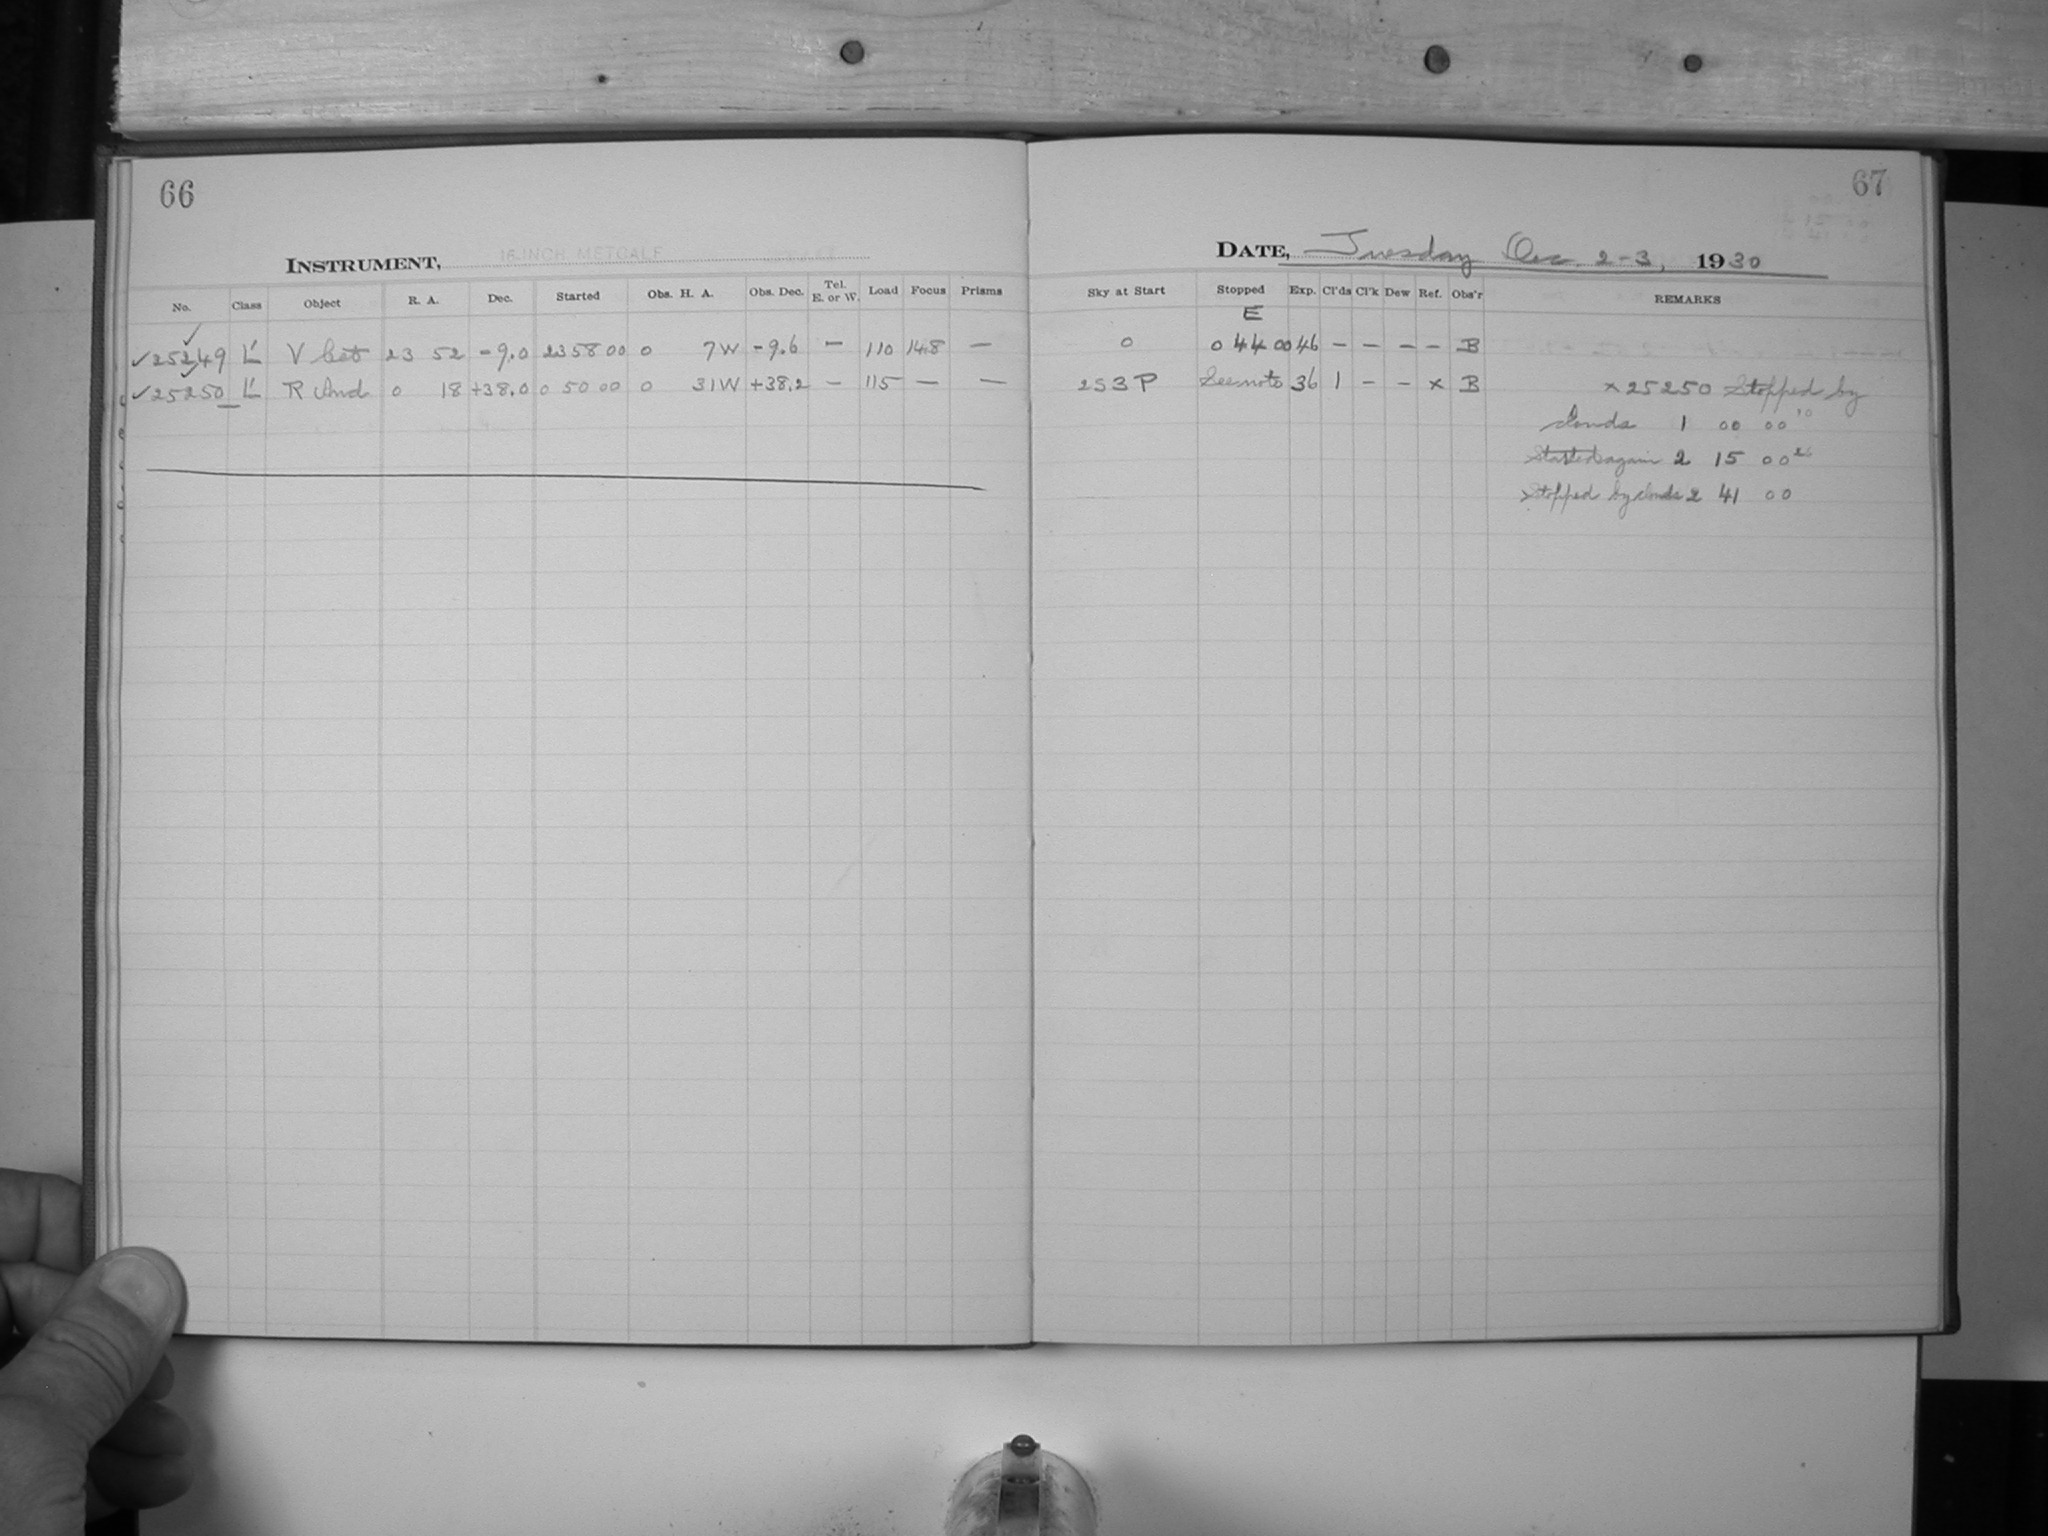 66
INSTRUMENT, 16-INCH METCALF
No. Class Object R. A. Dec. Started Obs. H. A. Obs. Dec. Tel. E. or W. Load Focus Prisms
✓25249 L' V Cet 23 52 -9.0 23 58 00 0 7W -9.6 — 110 14.8 —
✓25250 L' R And 0 18 +38.0 0 50 00 0 31W +38.2 — 115 — —
67
DATE, Tuesday Dec. 2-3, 1930
Sky at Start Stopped Exp. Cl'ds Cl'k Dew Ref. Obs'r REMARKS
E
0 0 44 00 46 — — — — B
2S3P See note 36 1 — — x B x 25250 Stopped by
clouds 1 00 00 10
Started again 2 15 00 26
Stopped by clouds 2 41 00